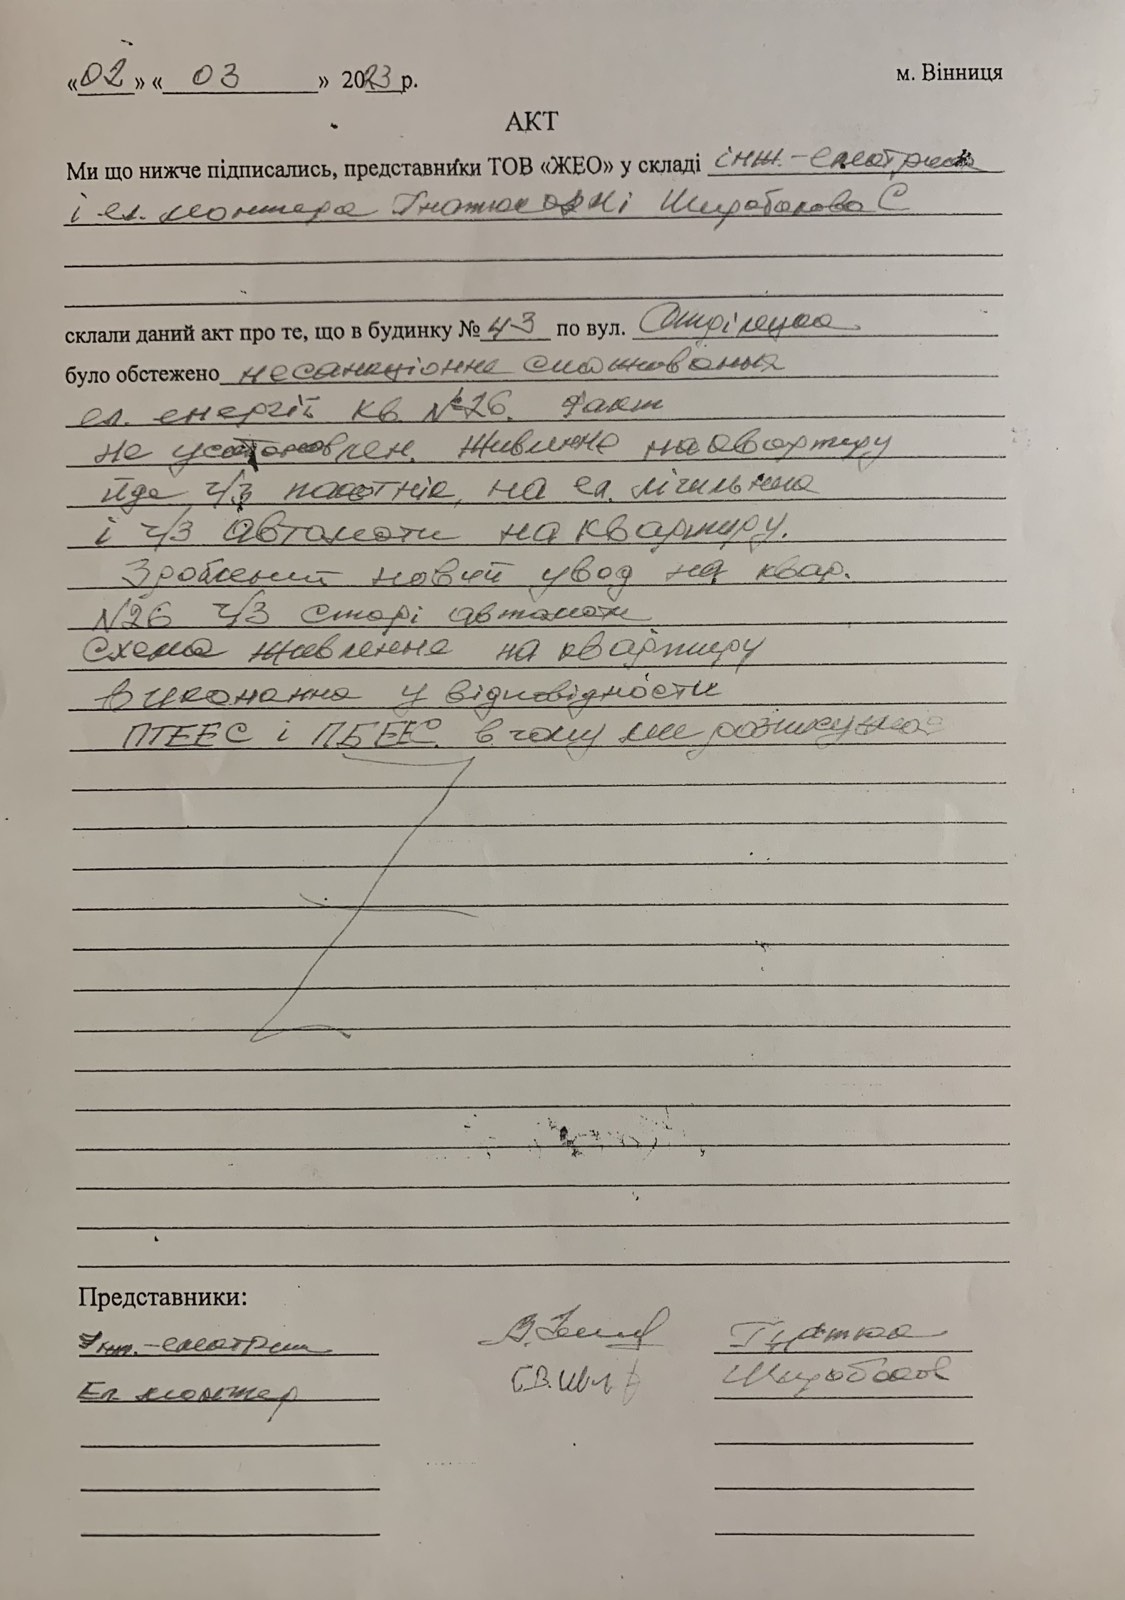 «02» « 03 » 2023 р. м. Вінниця
АКТ
Ми що нижче підписались, представники ТОВ «ЖЕО» у складі інж.-електрика
і ел. монтера Гнатюк Широбокова С
склали даний акт про те, що в будинку № 43 по вул. Стрілецька
було обстежено несанкціонне споживання
ел. енергії кв. №26. Факт
не установлен. Живлення на квартиру
йде ч/з на ел. лічильник
і ч/з автомати на квартиру.
Зроблений новий увод на квар.
№26 ч/з старі автомати
Схема живлення на квартиру
виконанна у відповідности
ПТЕЕС і ПБЕЕС. в чому ми розписуємось
Представники:
Інж.-електрик
Ел. монтер Широбоков